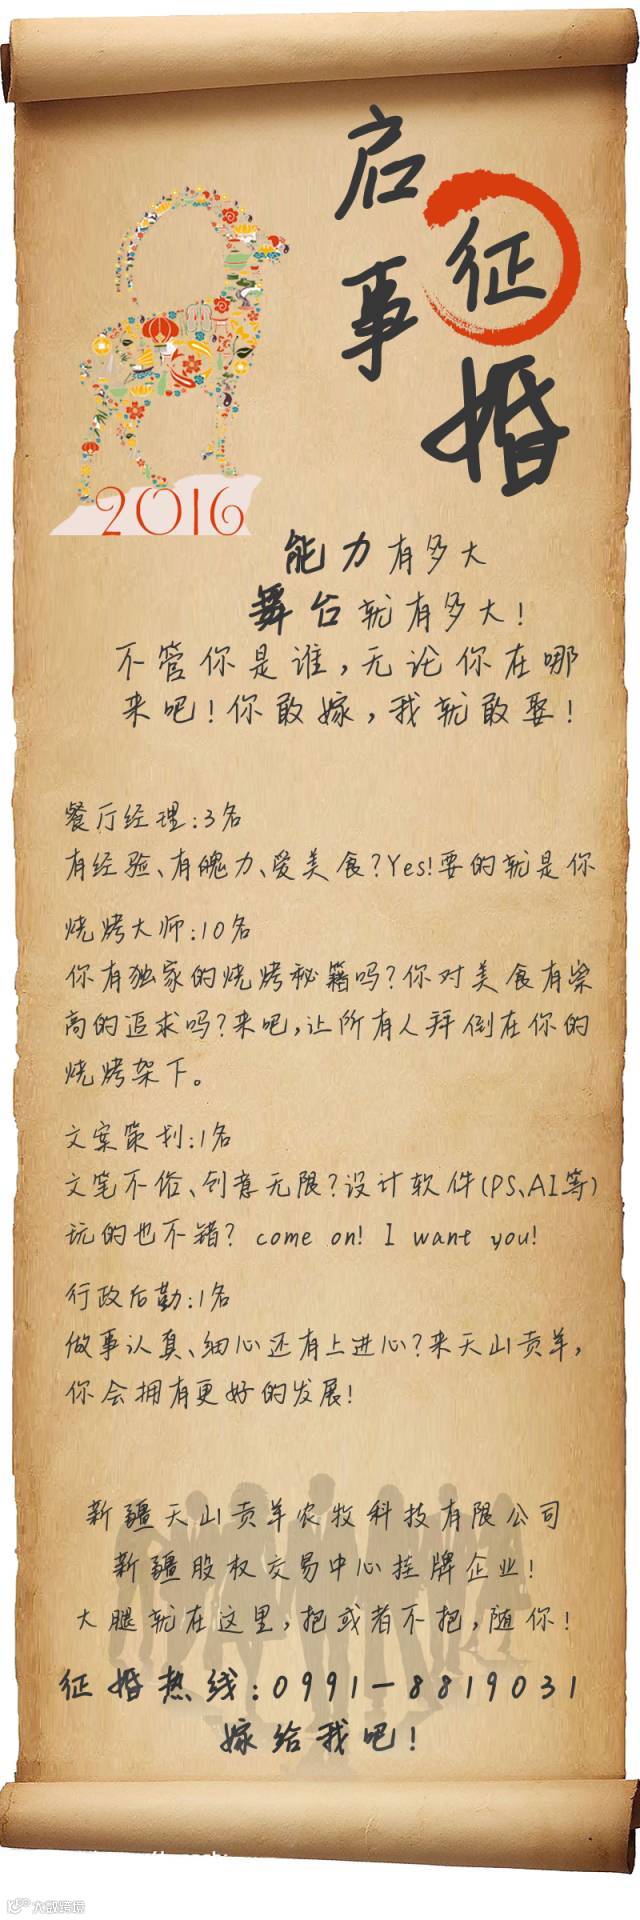 征婚
启事
2016
能力有多大
舞台就有多大!
不管你是谁,无论你在哪
来吧!你敢嫁,我就敢娶!
餐厅经理:3名
有经验、有魄力、爱美食?Yes!要的就是你
烧烤大师:10名
你有独家的烧烤秘籍吗?你对美食有崇
高的追求吗?来吧,让所有人拜倒在你的
烧烤架下。
文案策划:1名
文笔不俗、创意无限?设计软件(PS、AI等)
玩的也不错? come on! I want you!
行政后勤:1名
做事认真、细心还有上进心?来天山贡羊,
你会拥有更好的发展!
新疆天山贡羊农牧科技有限公司
新疆股权交易中心挂牌企业!
大腿就在这里,抱或者不抱,随你!
征婚热线:0991-8819031
嫁给我吧!
大数跨境